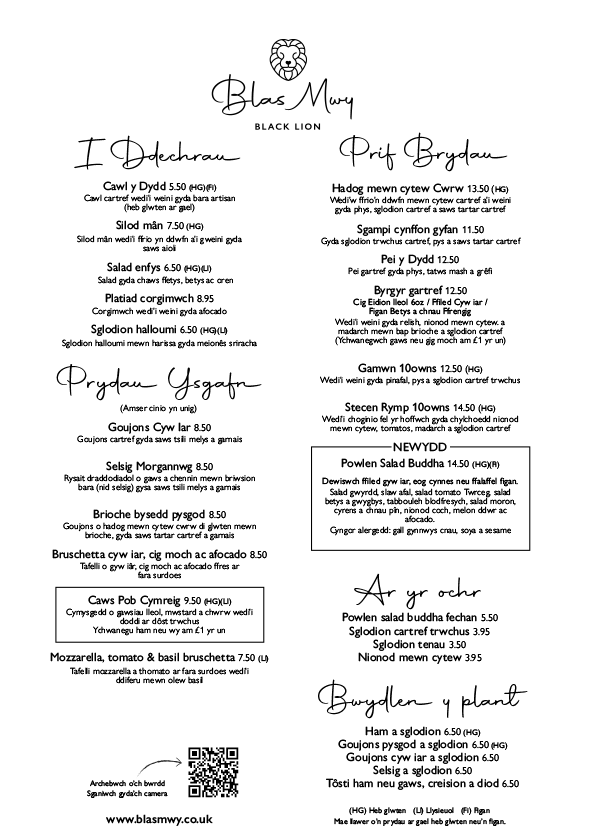 Blas Mwy
BLACK LION
I Ddechrau
Cawl y Dydd 5.50 (HG)(FI)
Cawl cartref wedi'i weini gyda bara artisan
(heb glwten ar gael)
Silod mân 7.50 (HG)
Silod mân wedi'i ffrio yn ddwfn a'i gweini gyda
saws aioli
Salad enfys 6.50 (HG)(LI)
Salad gyda chaws ffetys, betys ac oren
Platiad corgimwch 8.95
Corgimwch wedi'i weini gyda afocado
Sglodion halloumi 6.50 (HG)(LI)
Sglodion halloumi mewn harissa gyda meionês sriracha
Prydau Ysgafn
(Amser cinio yn unig)
Goujons Cyw Iar 8.50
Goujons cartref gyda saws tsili melys a garnais
Selsig Morgannwg 8.50
Rysait draddodiadol o gaws a chennin mewn briwsion
bara (nid selsig) gysa saws tsili melys a garnais
Brioche bysedd pysgod 8.50
Goujons o hadog mewn cytew cwrw di glwten mewn
brioche, gyda saws tartar cartref a garnais
Bruschetta cyw iar, cig moch ac afocado 8.50
Tafelli o gyw iâr, cig moch ac afocado ffres ar
fara surdoes
Caws Pob Cymreig 9.50 (HG)(LI)
Cymysgedd o gawsiau lleol, mwstard a chwrw wedi'i
doddi ar dôst trwchus
Ychwanegu ham neu wy am £1 yr un
Mozzarella, tomato & basil bruschetta 7.50 (LI)
Tafelli mozzarella a thomato ar fara surdoes wedi'i
ddiferu mewn olew basil
Archebwch o'ch bwrdd
Sganiwch gyda'ch camera
www.blasmwy.co.uk
Prif Brydau
Hadog mewn cytew Cwrw 13.50 (HG)
Wedi'w ffrio'n ddwfn mewn cytew cartref a'i weini
gyda phys, sglodion cartref a saws tartar cartref
Sgampi cynffon gyfan 11.50
Gyda sglodion trwchus cartref, pys a saws tartar cartref
Pei y Dydd 12.50
Pei gartref gyda phys, tatws mash a grêfi
Byrgyr gartref 12.50
Cig Eidion lleol 6oz / Ffiled Cyw iar /
Figan Betys a chnau Ffrengig
Wedi'i weini gyda relish, nionod mewn cytew. a
madarch mewn bap brioche a sglodion cartref
(Ychwanegwch gaws neu gig moch am £1 yr un)
Gamwn 10owns 12.50 (HG)
Wedi'i weini gyda pinafal, pys a sglodion cartref trwchus
Stecen Rymp 10owns 14.50 (HG)
Wedi'i choginio fel yr hoffwch gyda chylchoedd nionod
mewn cytew, tomatos, madarch a sglodion cartref
NEWYDD
Powlen Salad Buddha 14.50 (HG)(FI)
Dewiswch ffiled gyw iar, eog cynnes neu ffalaffel figan.
Salad gwyrdd, slaw afal, salad tomato Twrceg, salad
betys a gwygbys, tabbouleh blodfresych, salad moron,
cyrens a chnau pîn, nionod coch, melon ddwr ac
afocado.
Cyngor alergedd: gall gynnwys cnau, soya a sesame
Ar yr ochr
Powlen salad buddha fechan 5.50
Sglodion cartref trwchus 3.95
Sglodion tenau 3.50
Nionod mewn cytew 3.95
Bwydlen y plant
Ham a sglodion 6.50 (HG)
Goujons pysgod a sglodion 6.50 (HG)
Goujons cyw iar a sglodion 6.50
Selsig a sglodion 6.50
Tôsti ham neu gaws, creision a diod 6.50
(HG) Heb glwten (LI) Llysieuol (FI) Figan
Mae llawer o'n prydau ar gael heb glwten neu'n figan.